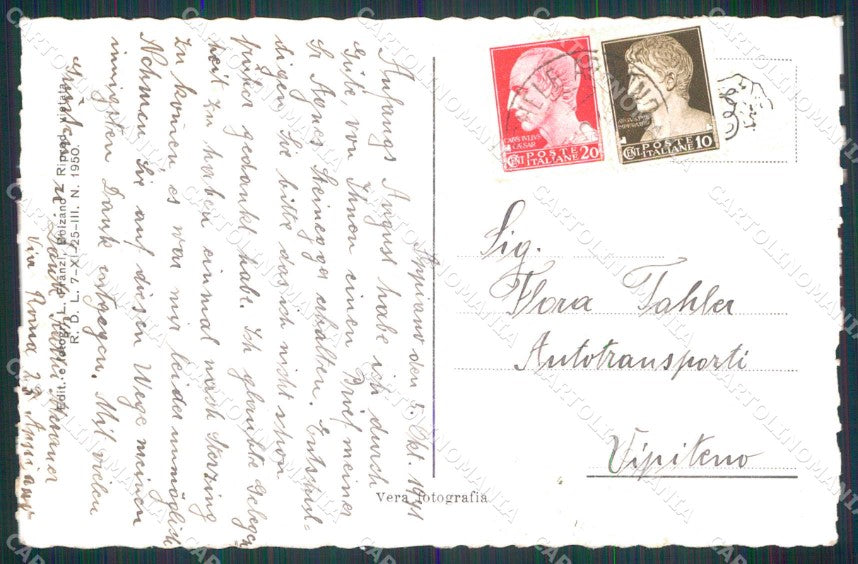 Appiano den 5. Okt. 1941
Anfangs August habe ich durch
Güte, von Ihnen einen Brief meiner
Sr. Agnes Steineger erhalten. Entschul-
digen Sie bitte das ich nicht schon
früher gedankt habe. Ich glaubte Gelegen
heit zu haben einmal nach Sterzing
zu komen es war mir leider unmöglich
Nehmen Sie auf diesen Wege meinen
innigsten Dank entgegen. Mit vielen
Grüßen
Via Roma 27 Appiano
Edit. e fotogr. L. Fränzl, Bolzano - Riprod. vietata
R. D. L. 7-XI-25-III. N. 1950.
Vera fotografia
Sig.
Flora Tahler
Autotransporti
Vipiteno
CAIUS IULIUS
CAESAR
POSTE
CENT ITALIANE 20
POSTE
CENT ITALIANE 10
CARTOLINOMANIA